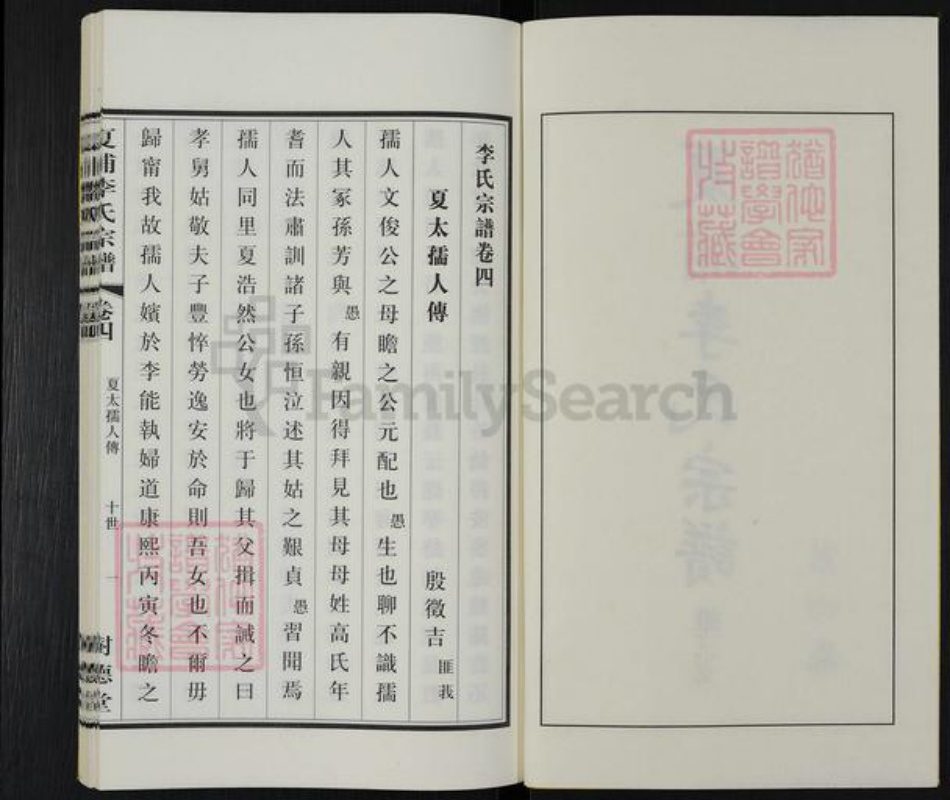 李氏宗譜卷四
夏太孺人傳
殷徵吉 匪莪
孺人文俊公之母瞻之公元配也愚生也聊不識孺
人其冢孫芳與愚有親因得拜見其母母姓高氏年
耆而法肅訓諸子孫恒泣述其姑之艱貞愚習聞焉
孺人同里夏浩然公女也將于歸其父揖而誡之曰
孝舅姑敬夫子豐悴勞逸安於命則吾女也不爾毋
歸甯我故孺人嬪於李能執婦道康熙丙寅冬瞻之
夏浦李氏宗譜
卷四
夏太孺人傳
十世
一
樹德堂
FamilySearch